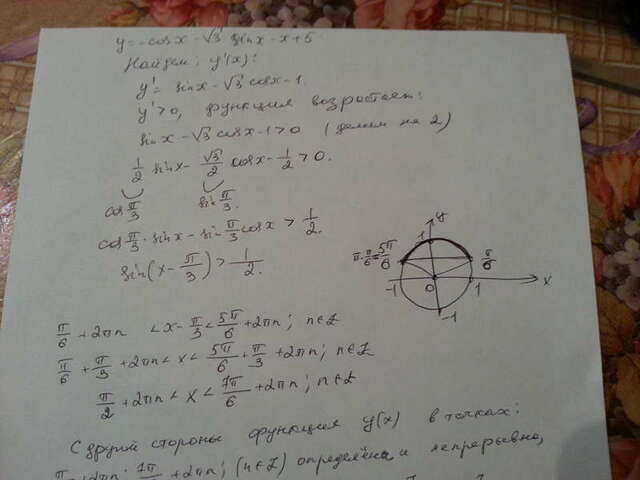 y = -cos x - √3 sin x - x + 5
Найдем: y'(x):
y' = sin x - √3 cos x - 1.
y' > 0, функция возростает:
sin x - √3 cos x - 1 > 0 (делим на 2)
1/2 sin x - √3/2 cos x - 1/2 > 0.
cos π/3 sin π/3
cos π/3 · sin x - sin π/3 cos x > 1/2.
sin(x - π/3) > 1/2.
y
1
π - π/6 = 5π/6 π/6
-1 0 1 x
-1
π/6 + 2πn < x - π/3 < 5π/6 + 2πn; n∈Z
π/6 + π/3 + 2πn < x < 5π/6 + π/3 + 2πn; n∈Z
π/2 + 2πn < x < 7π/6 + 2πn; n∈Z
С другой стороны функция y(x) в точках:
2πn; 7π/6 + 2πn; (n∈Z) определена и непрерывна,